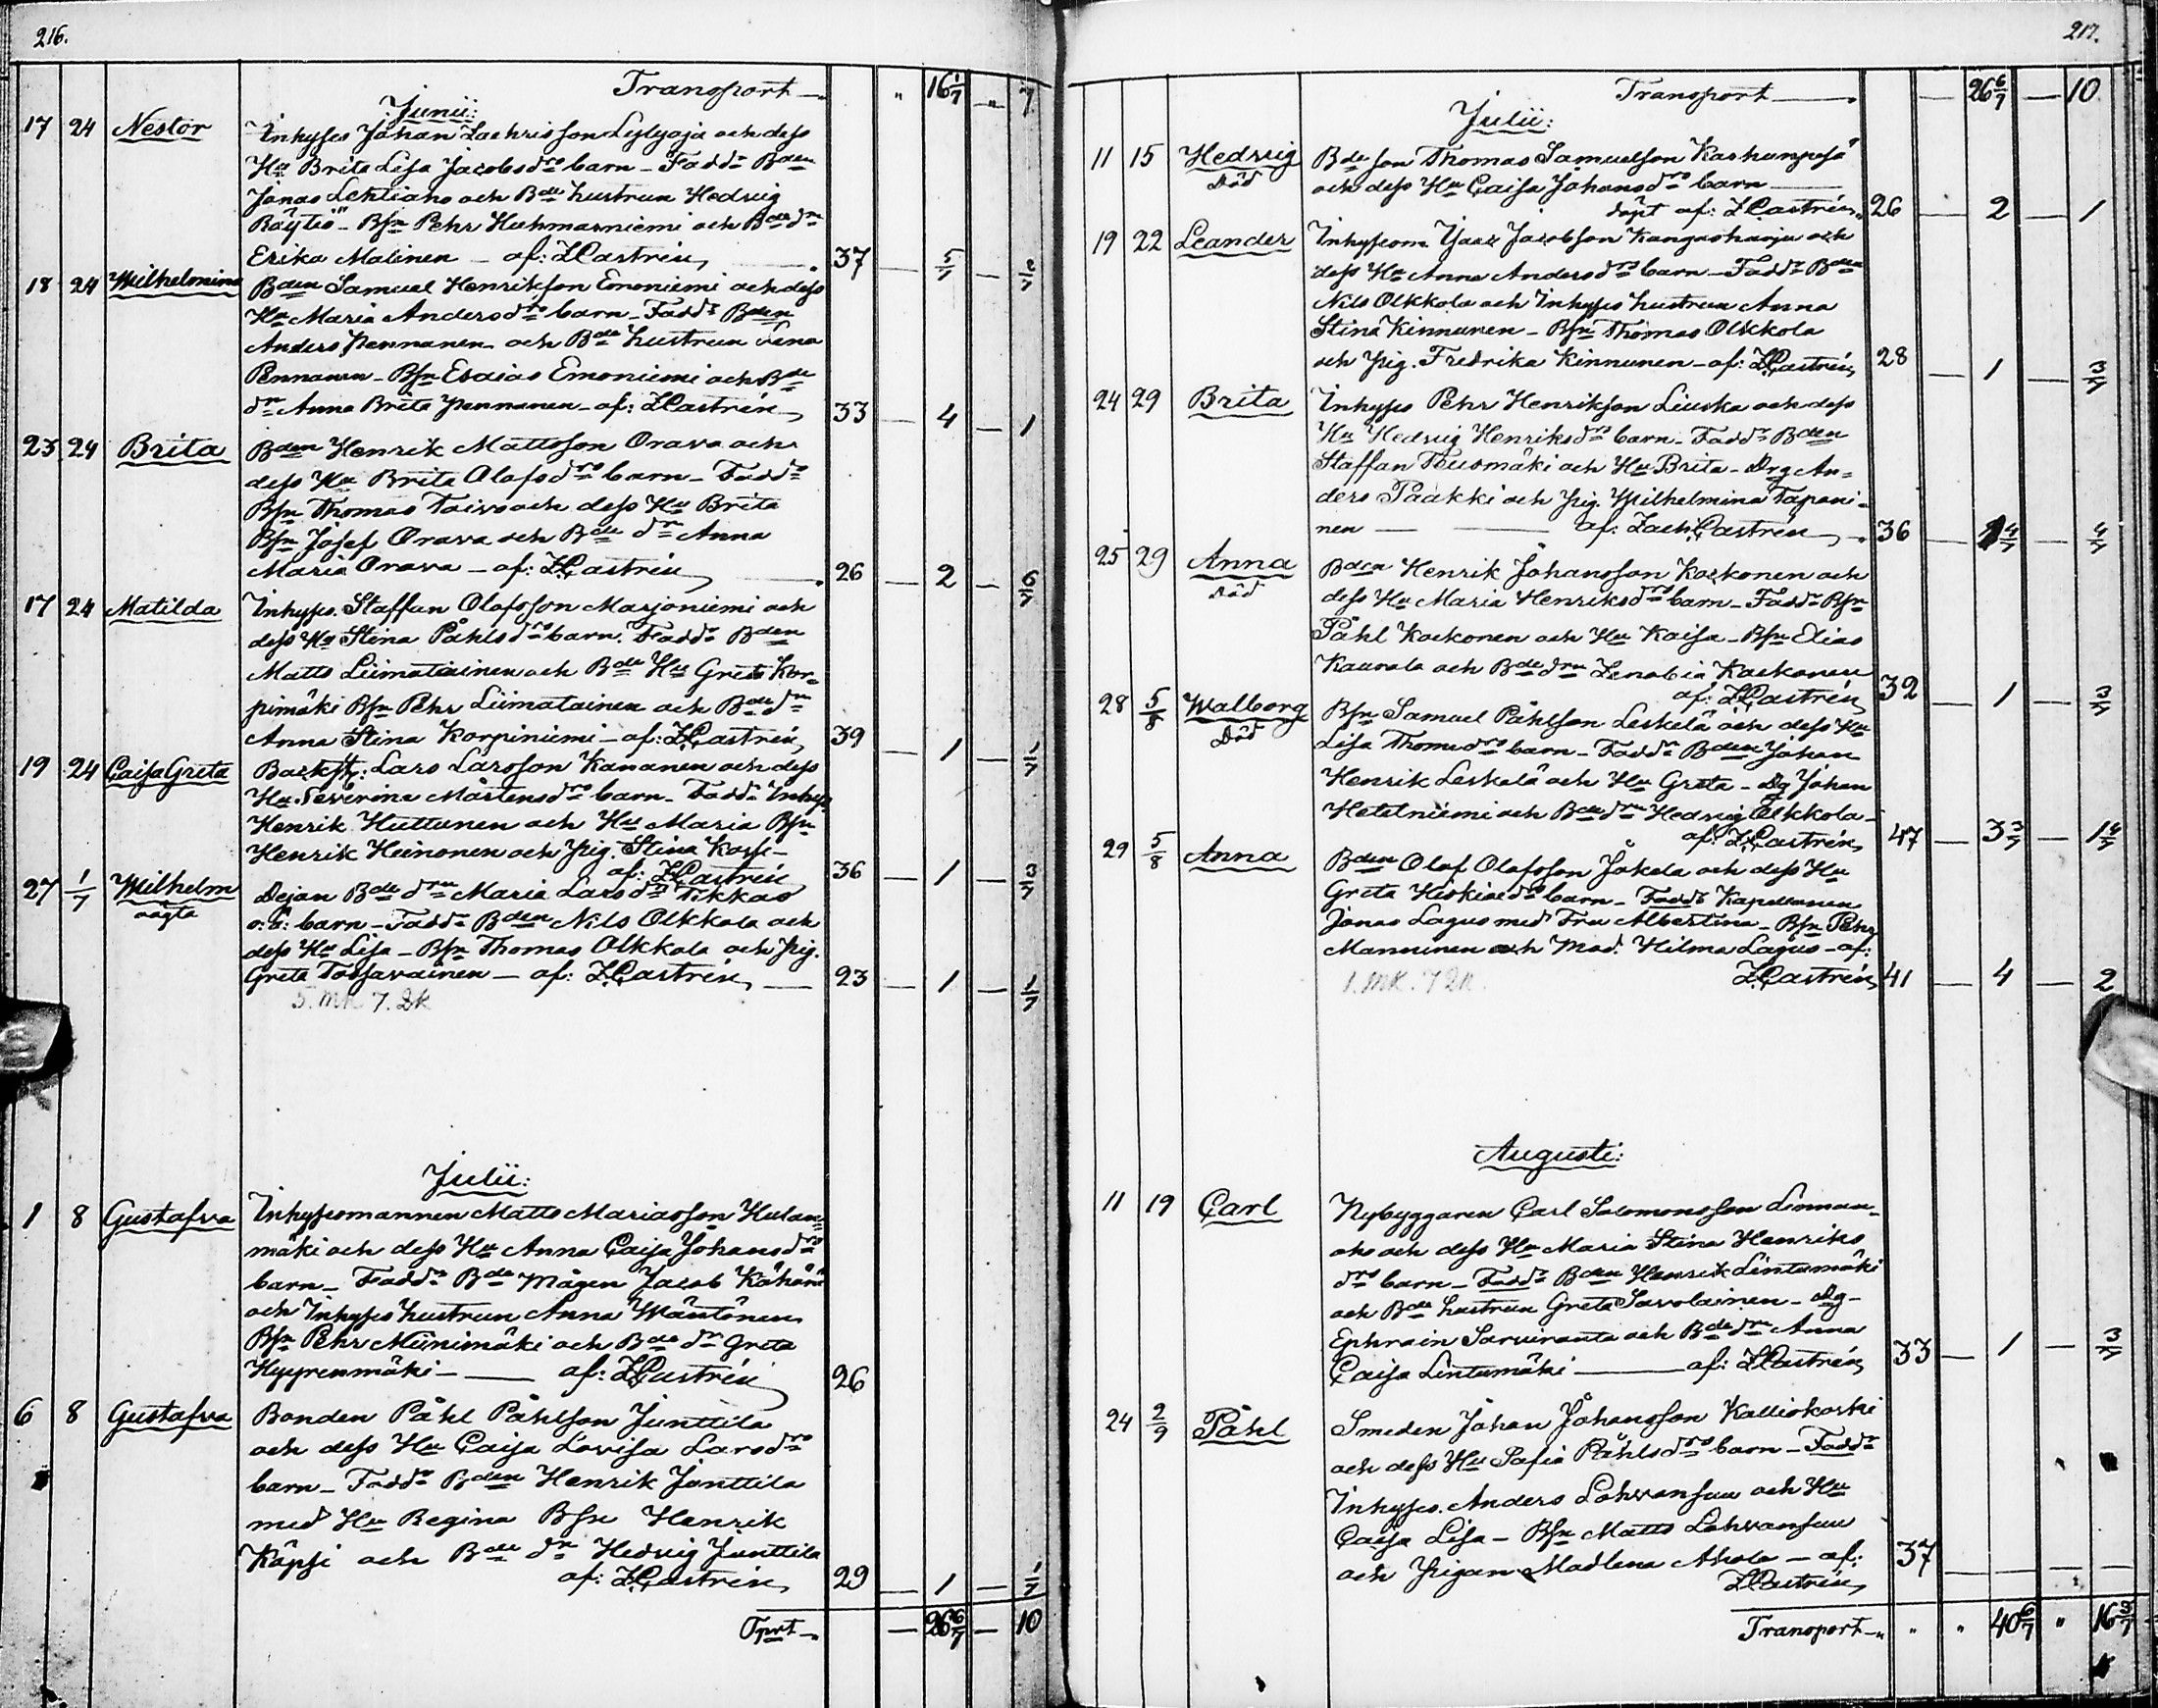 216.
Transport
" 16 1/7 " 7
Junii:
17 24 Nestor Inhyses Johan Zachrisson Leylyoja och dess
Hu Brita Lisa Jacobsdrs barn – Fadd: Bden
Jonas Lehtiaho och Bde hustrun Hedvig
Röytiö – Bsn Pehr Huhmarniemi och Bde dn
Erika Malinen – af: Z.Castrén, 37 — 5/7 —
18 24 Wilhelmina Bden Samuel Henriksson Emoniemi och dess
Hu Maria Andersdrs barn – Fadd: Bden
Anders Pennanen och Bde hustrun Lena
Pennanen – Bsn Esaias Emoniemi och Bde
dn Anna Brita Pennanen – af: Z.Castrén 33 — 4 — 1
23 24 Brita Bden Henrik Mattsson Orava och
dess Hu Brita Olofsdrs barn – Fadd:
Bsn Thomas Toivo och dess Hu Brita
Bsn Josef Orava och Bde dn Anna
Maria Orava – af: Z.Castrén 26 — 2 — 6/7
17 24 Matilda Inhyses. Staffan Olofsson Marjoniemi och
dess Hu Stina Påhlsdrs barn. Fadd: Bden
Matts Liimatainen och Bde Hu Greta Kor-
pimäki Bsn Pehr Liimatainen och Bde dn
Anna Stina Korpiniemi – af: Z.Castrén, 39 — 1 — 1/7
19 24 Caisa Greta Backst: Lars Larsson Kananen och dess
Hu Severina Mårtensdrs barn – Fadd: Inhys
Henrik Huttunen och Hu Maria Bsn
Henrik Heinonen och Pig. Stina Karp –
af: Z.Castrén 36 — 1 — 3/7
27 1/7 Wilhelm Dejan Bde drn Maria Larsdr Tikkas
oägta o: ä: barn – Fadd: Bden Nils Olkkola och
dess Hu Lisa – Bsn Thomas Olkkola och Pig.
Greta Tossavainen – af: Z.Castrén, — 23 — 1 — 1/7
5. mk. 7. Qk
Julii:
1 8 Gustafva Inhysesmannen Matts Mariasson Hulan-
mäki och dess Hu Anna Caisa Johansdrs
barn – Fadd: Bde Mågen Jacob Kähäri
och Inhyses hustrun Anna Wäntönen
Bsn Pehr Miinimäki och Bde dn Greta
Hyyrenmäki – — af: Z.Castrén 26
6 8 Gustafva Bonden Påhl Påhlsson Junttila
och dess Hu Caisa Lovisa Larsdrs
barn – Fadd: Bden Henrik Junttila
med Hu Regina Bsn Henrik
Käpsi och Bde dn Hedvig Junttila
af: Z.Castrén, 29 — 1 — 1/7
Tprt — 26 6/7 — 10
217.
Transport — 26 6/7 — 10
Julii:
11 15 Hedvig Bde son Thomas Samuelson Karhunpesä
Död och dess Hu Caisa Johansdrs barn —
döpt af: Z.Castrén, 26 — 2 — 1
19 22 Leander Inhysesm. Isac Jacobsson Kangasharju och
dess Hu Anna Andersdrs barn – Fadd: Bden
Nils Olkkola och Inhyses hustrun Anna
Stina Kinnunen – Bsn Thomas Olkkola
och Pig. Fredrika Kinnunen – af: Z.Castrén, 28 — 1 — 3/7
24 29 Brita Inhyses Pehr Henriksson Liuska och dess
Hu Hedvig Henriksdrs barn – Fadd: Bden
Staffan Teusmäki och Hu Brita – Drg An-
ders Paakki och Pig. Wilhelmina Tapani-
nen — — af: Zach: Castrén 36 — 4/7 — 4/7
25 29 Anna Bden Henrik Johansson Koskonen och
Död dess Hu Maria Henriksdrs barn – Fadd: Bsn
Påhl Koskonen och Hu Kaisa – Bsn Elias
Kaurala och Bde drn Zenobia Koskonen
af: Z.Castrén 32 — 1 — 3/7
28 5/8 Walborg Bsn Samuel Påhlsson Leskelä och dess Hu
Död Lisa Thomædrs barn – Fadd: Bden Johan
Henrik Leskelä och Hu Greta – Dg Johan
Hetelniemi och Bde drn Hedvig Olkkola –
af: Z.Castrén, 47 — 3 3/7 — 1 4/7
29 5/8 Anna Bden Olof Olofsson Jokela och dess Hu
Greta Hiskiædrs barn – Fadd: Kapellanen
Jonas Lagus med Fru Albertina – Bsn Pehr
Manninen och Mad. Hilma Lagus – af:
Z.Castrén 41 — 4 — 2
1. mk. 7 Qk.
Augusti:
11 19 Carl Nybyggaren Carl Salomonsson Linnan-
aho och dess Hu Maria Stina Henriks
drs barn – Fadd: Bden Henrik Lintumäki
och Bde hustrun Greta Savolainen – Dg –
Ephraim Sarviranta och Bde drn Anna
Caisa Lintumäki — af: Z.Castrén, 33 — 1 — 3/7
24 2/9 Påhl Smeden Johan Johansson Kalliokoski
och dess Hu Sofia Påhlsdrs barn – Fadd:
Inhyses. Anders Lohvansuu och Hu
Caisa Lisa – Bsn Matts Lohvansuu
och Pigan Madlena Ahola – af: 37
Z.Castrén,
Transport " " 40 6/7 " 16